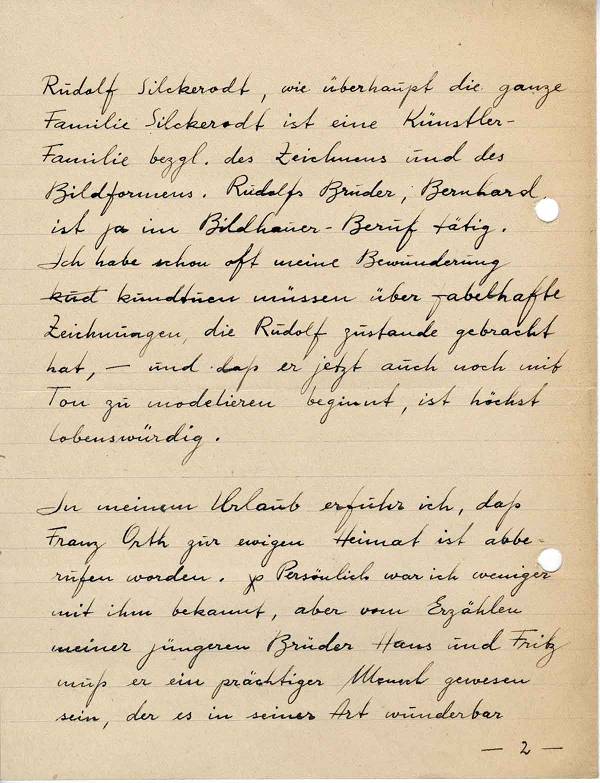 Rudolf Silckerodt, wie überhaupt die ganze
Familie Silckerodt ist eine Künstler-
Familie bezgl. des Zeichnens und des
Bildformens. Rudolfs Bruder, Bernhard,
ist ja im Bildhauer-Beruf tätig.
Ich habe schon oft meine Bewunderung
kud kundtuen müssen über fabelhafte
Zeichnungen, die Rudolf zustande gebracht
hat, — und daß er jetzt auch noch mit
Ton zu modelieren beginnt, ist höchst
lobenswürdig.
In meinem Urlaub erfuhr ich, daß
Franz Orth zur ewigen Heimat ist abbe-
rufen worden. Persönlich war ich weniger
mit ihm bekannt, aber vom Erzählen
meiner jüngeren Brüder Hans und Fritz
muß er ein prächtiger Mensch gewesen
sein, der es in seiner Art wunderbar
— 2 —